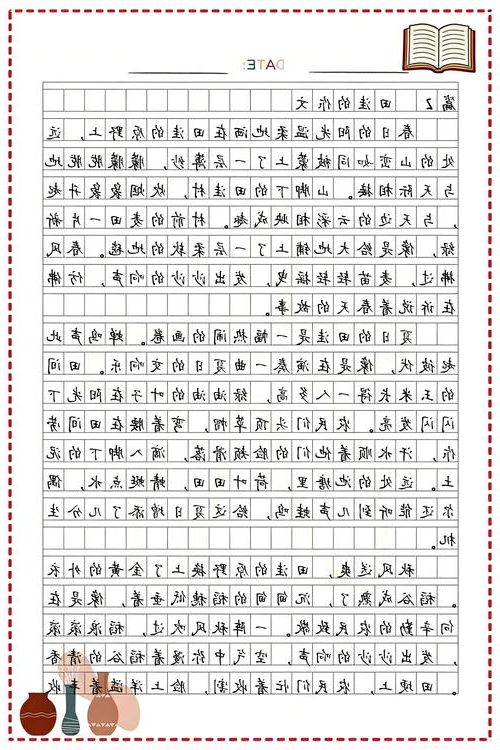 DATE:
篇2 田洼的作文
春日的阳光温柔地洒在田洼的原野上，远
处的山峦如同被蒙上了一层薄纱，朦朦胧胧地
与天际相接。山脚下的田洼村，炊烟袅袅升起
，与天边的云彩相映成趣。村前的麦田一片新
绿，像是给大地铺上了一层柔软的地毯。春风
拂过，麦苗轻轻摇曳，发出沙沙的响声，仿佛
在诉说着春天的故事。
夏日的田洼是一幅热闹的画卷。蝉鸣声此
起彼伏，像是在演奏一曲夏日的交响乐。田间
的玉米长得一人多高，绿油油的叶子在阳光下
闪闪发亮。农民们头顶草帽，弯着腰在田间劳
作，汗水顺着他们的脸颊滑落，滴入脚下的泥
土。远处的池塘里，荷叶田田，蜻蜓点水，偶
尔还能听到几声蛙鸣，给这夏日增添了几分生
机。
秋风送爽，田洼的原野换上了金黄的外衣
。稻谷成熟了，沉甸甸的稻穗低垂着，像是在
向辛勤的农民致敬。一阵秋风吹过，稻浪滚滚
，发出沙沙的响声，空气中弥漫着稻谷的清香
。田埂上，农民们忙着收割，脸上洋溢着丰收